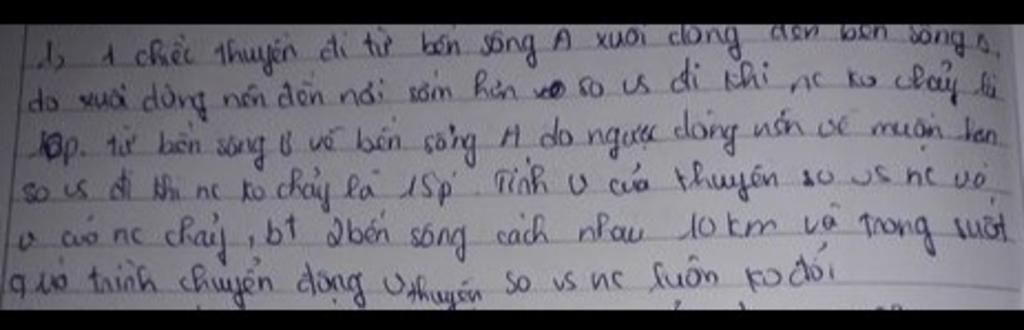 1, 1 chiếc thuyền đi từ bến sông A xuôi dòng đến bến sông B,
do xuôi dòng nên đến nơi sớm hơn so vs đi khi nc ko chảy là
10p. từ bến sông B về bến sông A do ngược dòng nên về muộn hơn
so vs đi khi nc ko chảy là 15p. Tính v của thuyền so vs nc và
v của nc chảy, bt 2 bến sông cách nhau 10 km và trong suốt
quá trình chuyển động v thuyền so vs nc luôn ko đổi